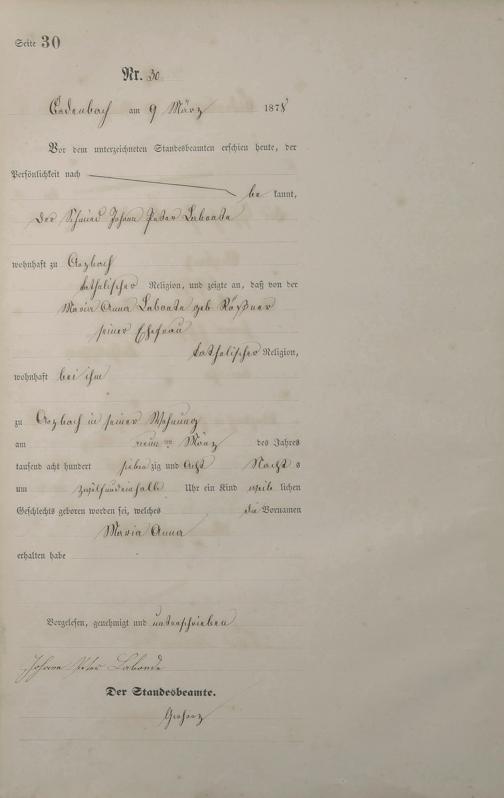 Seite 30
Nr. 30
am 9 März 1878
Vor dem unterzeichneten Standesbeamten erschien heute, der
Persönlichkeit nach
be kannt,
der Schmied Johann Peter Labonte
wohnhaft zu Arzbach
katholischer Religion, und zeigte an, daß von der
Maria Anna Labonte geb Rößner
seiner Ehefrau
katholischer Religion,
wohnhaft bei ihm
zu Arzbach in seiner Wohnung
am neun ten März des Jahres
tausend acht hundert sieben zig und acht Nacht s
um Uhr ein Kind weib lichen
Geschlechts geboren worden sei, welches die Vornamen
Maria Anna
erhalten habe
Vorgelesen, genehmigt und unterschrieben
Johann Peter Labonde
Der Standesbeamte.